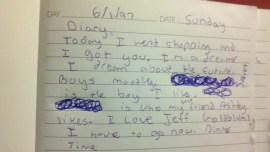 DAY 6/1/97 DATE Sunday
Diary,
Today I went shopping and
I got you. I'm a dreamer
I dream about the future
Boys mostly.
is the boy I like.
is who my friend Ashley
likes. I love Jeff
I have to go now. Dinner
Time